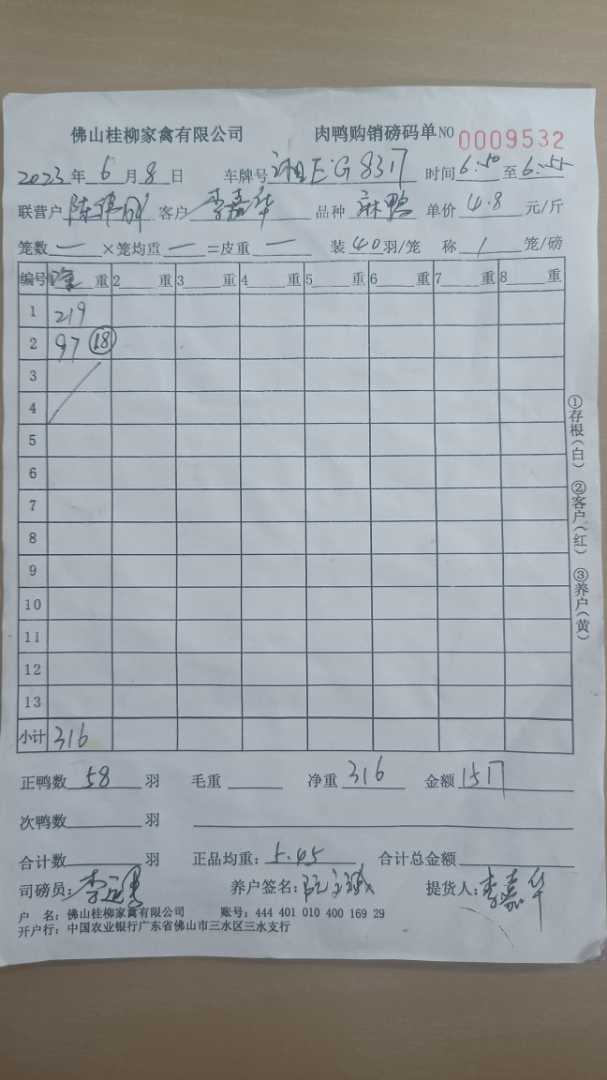 佛山桂柳家禽有限公司 肉鸭购销磅码单 NO 0009532
2023年 6 月 8 日 车牌号 E·G8317 时间 6:50 至 6:55
联营户 陈 客户 李嘉华 品种 麻鸭 单价 4.8 元/斤
笼数 一 ×笼均重 一 =皮重 一 装 40 羽/笼 称 1 笼/磅
编号 1 重 2 重 3 重 4 重 5 重 6 重 7 重 8 重
1 219
2 97 18
3
4
5
6
7
8
9
10
11
12
13
小计 316
①存根(白) ②客户(红) ③养户(黄)
正鸭数 58 羽 毛重 净重 316 金额 1517
次鸭数 羽
合计数 羽 正品均重: 5.45 合计总金额
司磅员: 李 养户签名: 提货人: 李嘉华
户 名: 佛山桂柳家禽有限公司 账号: 444 401 010 400 169 29
开户行: 中国农业银行广东省佛山市三水区三水支行